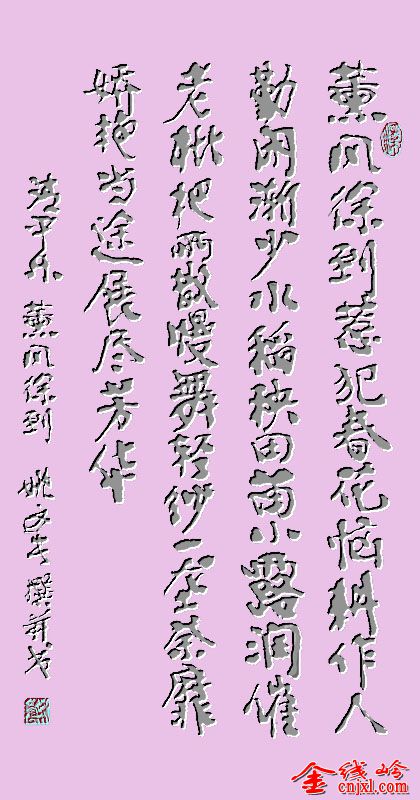 薰风徐到惹犯春花恼耕作人
勤闲渐少水稻秧田苗小露润催
老枇杷雨散慢舞轻纱一座荼靡
娇艳当途展尽芳华
清平乐 薰风徐到 姚文撰并书
金线岭
cnjxl.com